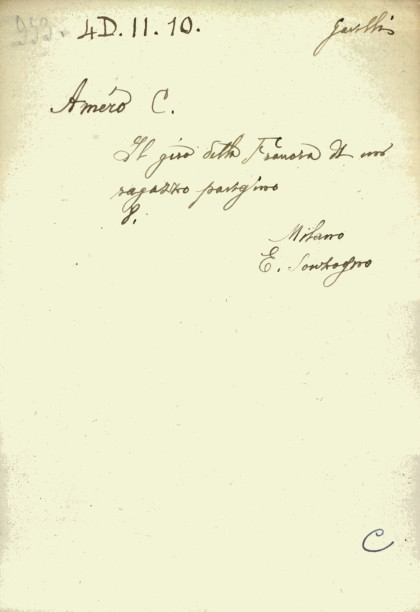 4D. II. 10.
Améro C.
Il giro della Francia di un
ragazzo parigino
8.
Milano
E. Sonzogno
C